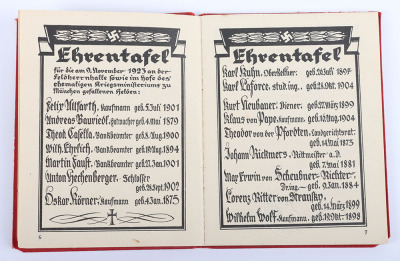 Ehrentafel
für die am 9. November 1923 an der
Feldherrnhalle sowie im Hofe des
ehemaligen Kriegsministeriums zu
München gefallenen Helden:
Felix Allfarth, Kaufmann geb. 5. Juli 1901
Andreas Bauriedl, Hutmacher geb. 4. Mai 1879
Theod. Casella, Bankbeamter geb. 8. Aug. 1900
Wilh. Ehrlich, Bankbeamter geb. 19. Aug. 1894
Martin Faust, Bankbeamter geb. 27. Jan. 1901
Anton Hechenberger, Schlosser
geb. 28. Sept. 1902
Oskar Körner, Kaufmann geb. 4. Jan. 1875
6
Ehrentafel
Karl Kuhn, Oberkellner, geb. 26. Juli 1897
Karl Laforce, stud. ing., geb. 28. Okt. 1904
Kurt Neubauer, Diener, geb. 27. März 1899
Klaus von Pape, Kaufm., geb. 16. Aug. 1904
Theodor von der Pfordten, Landgerichtsrat
geb. 14. Mai 1873
Johann Rickmers, Rittmeister a. D.
geb. 7. Mai 1881
Max Erwin von Scheubner-Richter,
Dr. ing., geb. 9. Jan. 1884
Lorenz Ritter von Stransky,
geb. 14. März 1899
Wilhelm Wolf, Kaufmann, geb. 19. Okt. 1898
7